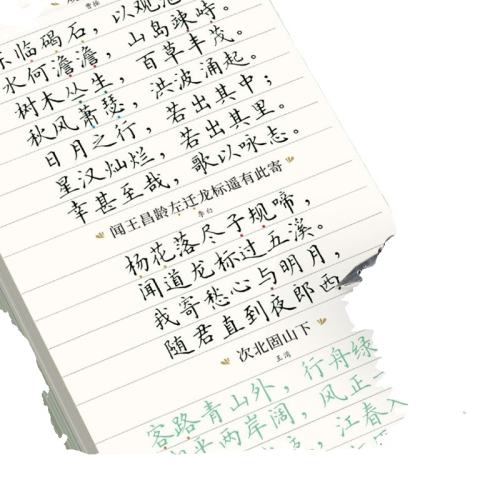 曹操
东临碣石，以观沧
水何澹澹，山岛竦峙。
树木丛生，百草丰茂。
秋风萧瑟，洪波涌起。
日月之行，若出其中；
星汉灿烂，若出其里。
幸甚至哉，歌以咏志。
闻王昌龄左迁龙标遥有此寄
李白
杨花落尽子规啼，
闻道龙标过五溪。
我寄愁心与明月，
随君直到夜郎西
次北固山下
王湾
客路青山外，行舟绿
两岸阔，风正一
江春入